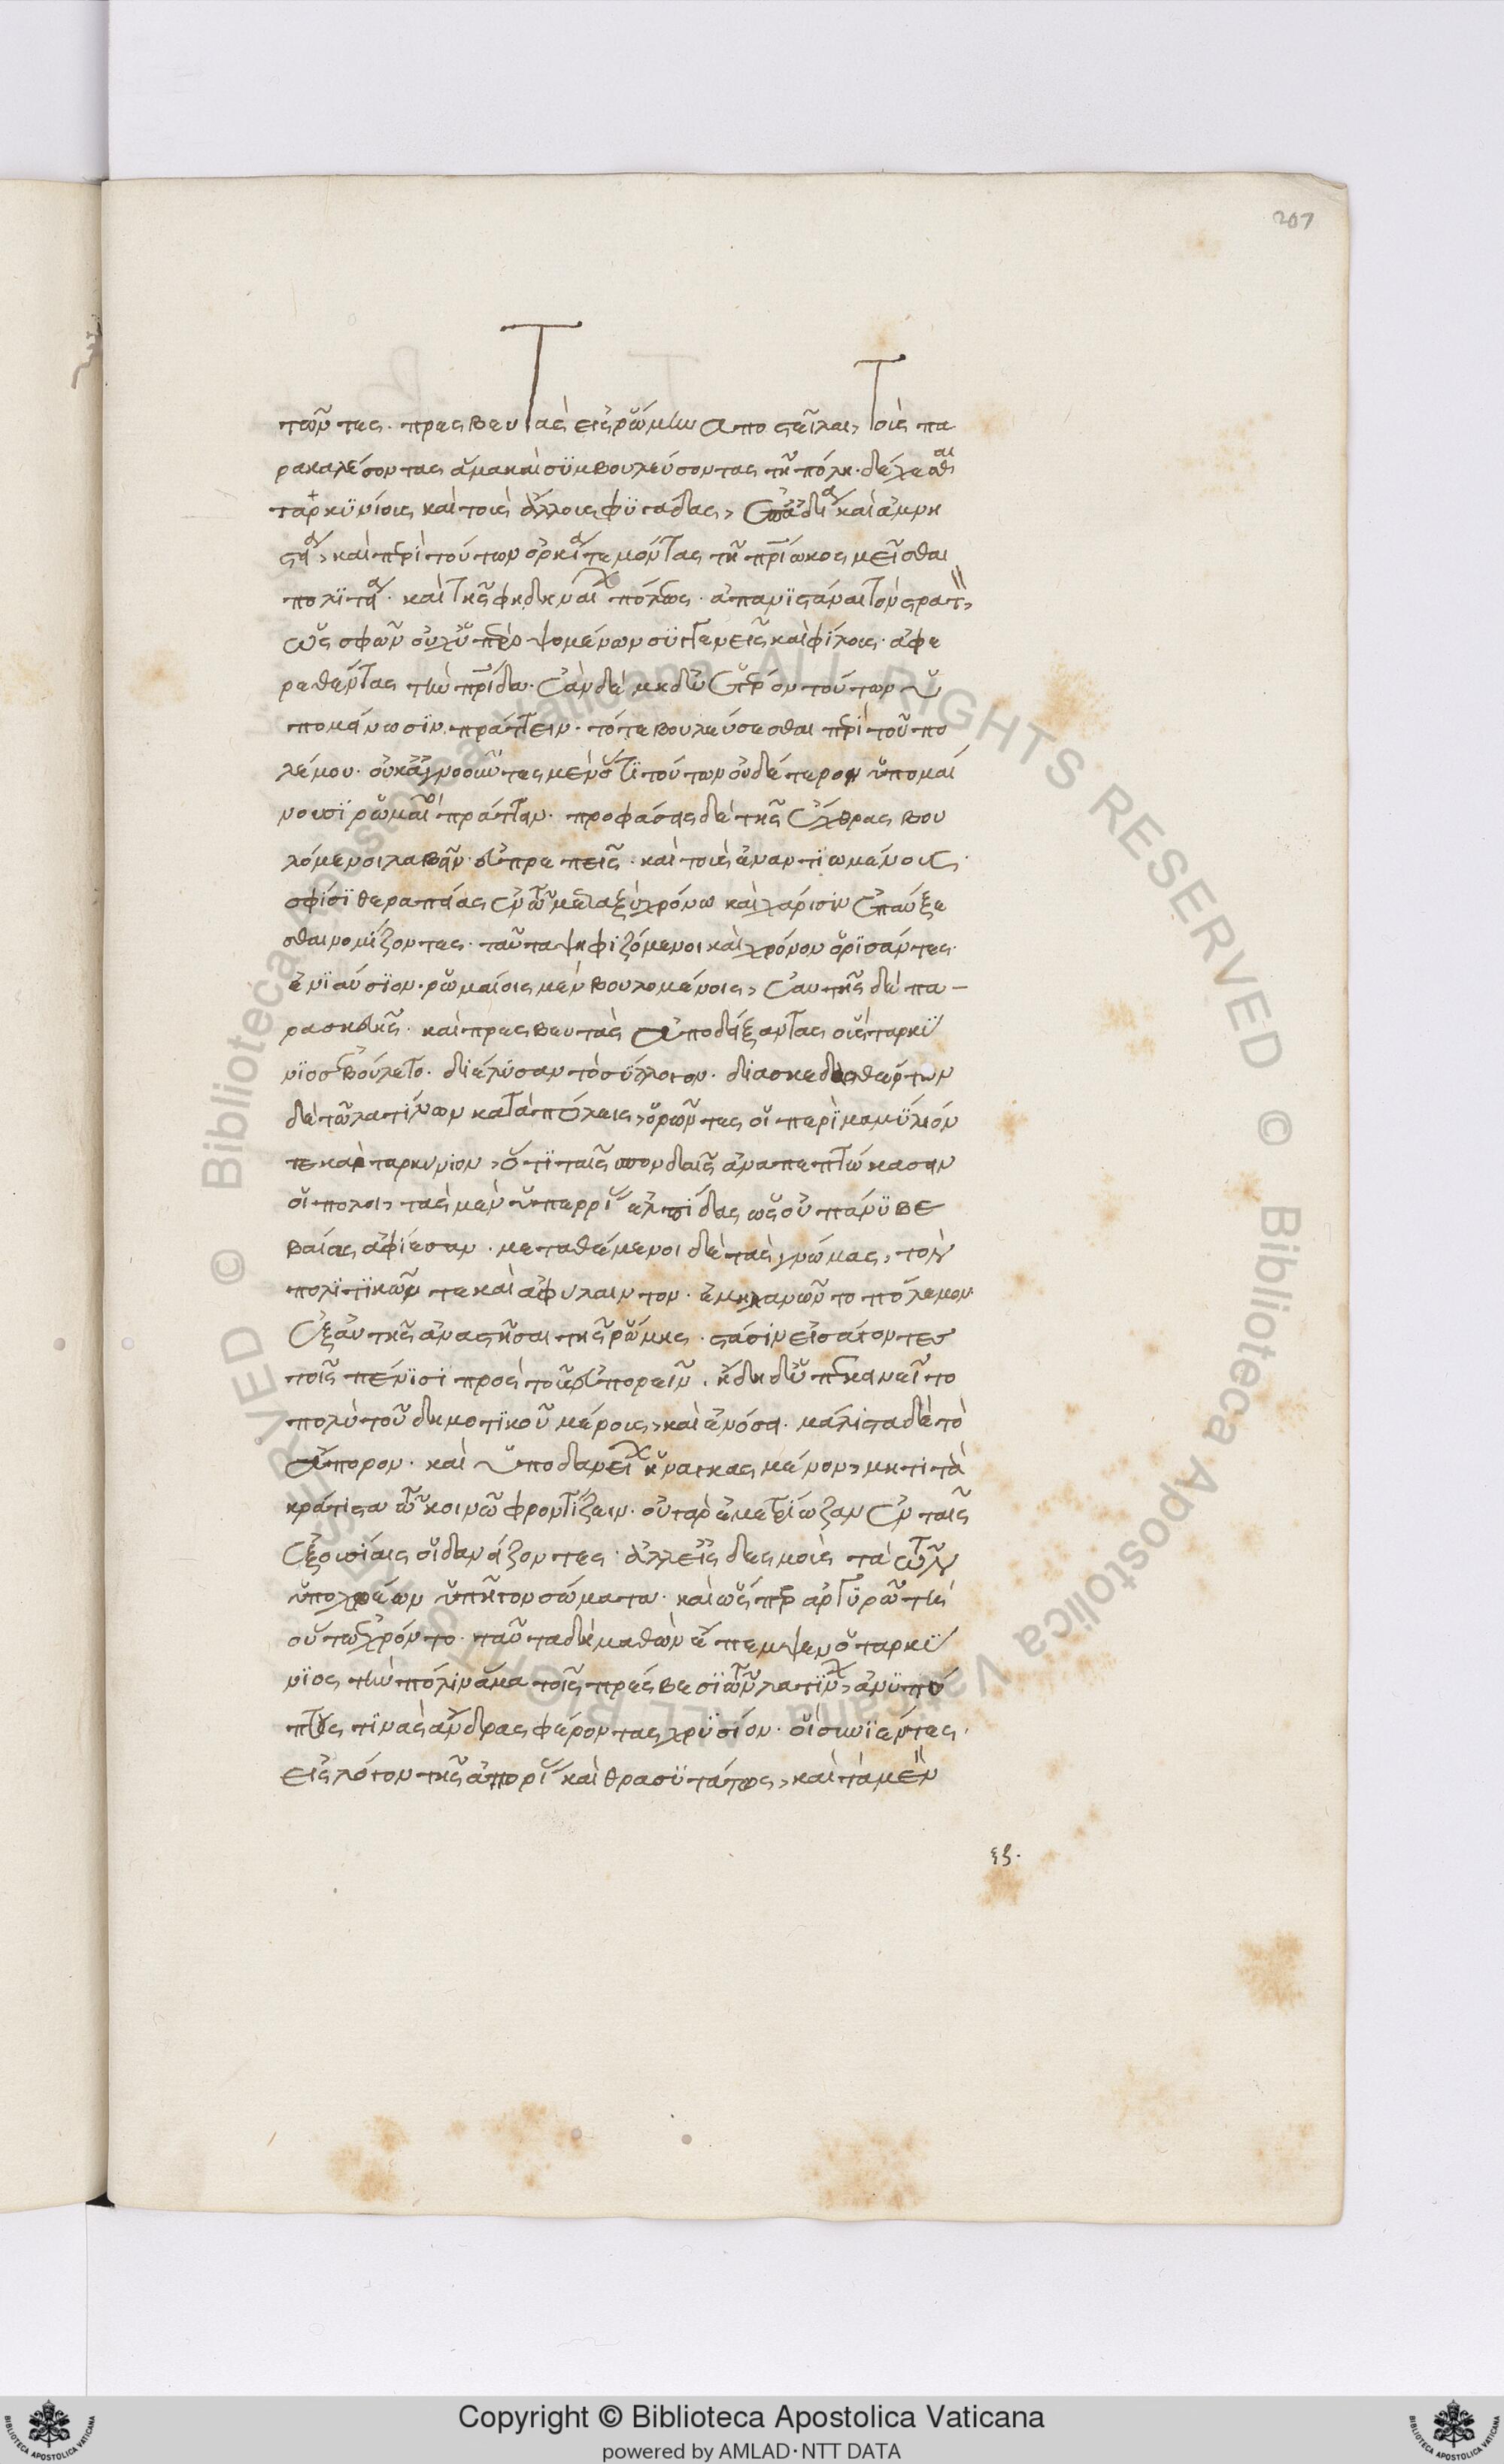 207
τῶν τες. πρεσβευτὰς εἰς ῥώμην ἀποστεῖλαι, τοὺς πα
ρακαλέσοντας ἅμα καὶ συμβουλεύσοντας τῆ πόλει. δέχεσθαι
ταρκυνίους καὶ τοὺς ἄλλους φυγάδας,
καὶ περὶ τούτων ὅρκια τεμόντας τῆ
πολίτα. καὶ τῆς φιδηναί πόλεως. ἀπανιστάναι τὸν στρατ
ὡς σφῶν συγγενεῖς καὶ φίλους. ἀφε
ρεθέντας τὴν πρίδα. ἐὰν δὲ μηδὲν ἕτερον τούτων ὑ
πομένωσιν πράττειν. τότε βουλεύσεσθαι περὶ τοῦ πο
λέμου. οὐκ ἀγνοοῦντες μὲν ὅτι τούτων οὐδέτερον ὑπομέ
νουσι ῥωμαῖοι πράττειν. προφάσεις δὲ τῆς ἔχθρας βου
λόμενοι λαβεῖν εὐπρεπεῖς. καὶ τοὺς ἐναντιωμένους
σφίσι θεραπείας ἐν τῶ μεταξὺ χρόνω καὶ χάρισιν ἐπαύξε
σθαι νομίζοντες. ταῦτα ψηφιζόμενοι καὶ χρόνον ὁρίσαντες
ἐνιαύσιον. ῥωμαίοις μὲν βουλομένοις, ἑαυτῆς δὲ πα-
ρασκευῆς. καὶ πρεσβευτὰς ἀποδείξαντας οὓς ταρκύ
νιος ἐβούλετο. διέλυσαν τὸν σύλλογον. διασκεδασθέντων
δὲ τῶν λατίνων κατὰ πόλεις, ὁρῶντες οἱ περὶ μαμύλιόν
τε καὶ ταρκυνιον, ὅτι ταῖς σπουδαῖς ἀναπεπτώκασιν
οἱ πολοι, τὰς μὲν ὑπερρί ἐλπίδας ὡς οὐ πάνυ βε
βαίας ἀφίεσαν. μεταθέμενοι δὲ τὰς γνώμας, τὸν
πολιτικῶν τε καὶ ἀφυλακτον. ἐμηχανῶντο πόλεμον
ἐξ αὐτῆς ἀναστῆσαι τῆς ῥώμης. στάσιν εἰσάγοντες
τοῖς πένισι πρὸς τοὺς εὐπορεῖν. ἤδη δ' ὑπεκινεῖτο
πολὺ τοῦ δημοτικοῦ μέρους, καὶ ἐνόσει. μάλιστα δὲ τὸ
ἄπορον. καὶ ὑπὸ δανεί ἠναγκασμένον, μηκέτι τὰ
κράτιστα τῶ κοινῶ φροντίζειν. οὐ γὰρ ἐμετρίωζαν ἐν ταῖς
ἐξουσίαις οἱ δανείζοντες. ἀλλ' εἰς δεσμοὺς τὰ τῶν
ὑποχρέων ὑπῆγον σώματα. καὶ ὥσπερ ἀργυρωνή
οὕτως ἐχρῶντο. ταῦτα δὲ μαθὼν ἔπεμψεν ὁ ταρκύ
νιος τὴν πόλιν ἅμα τοῖς πρέσβεσι τῶν λατίν, ἀνυπό
πτους τινὰς ἄνδρας φέροντας χρυσίον. οἱ συνιέντες
εἰς λόγον τῆς ἀπορί καὶ θρασυτάτοις, καὶ τὰ μὲν
ξς.
Copyright © Biblioteca Apostolica Vaticana
powered by AMLAD·NTT DATA